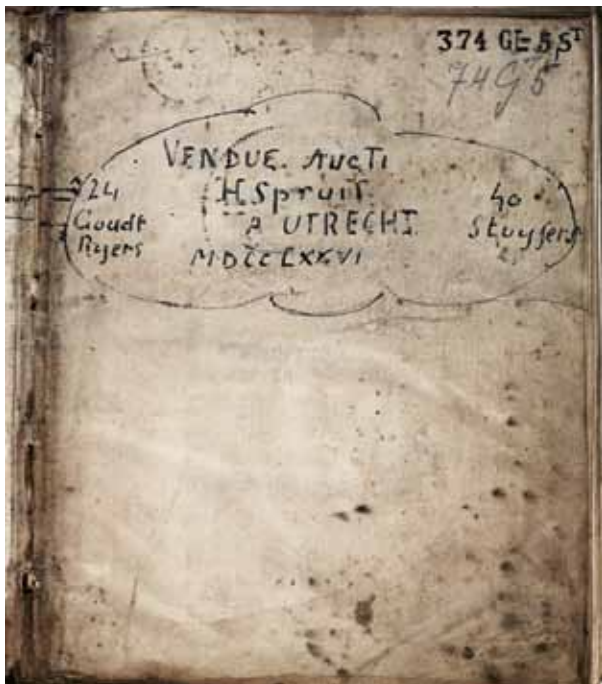 374 GE=5Sᵀ
74 G 5
VENDUE. AUCTI
HSpruit
A UTRECHT
MDCCLXXVI
24
Goudt
Ryers
40
Stuyfers